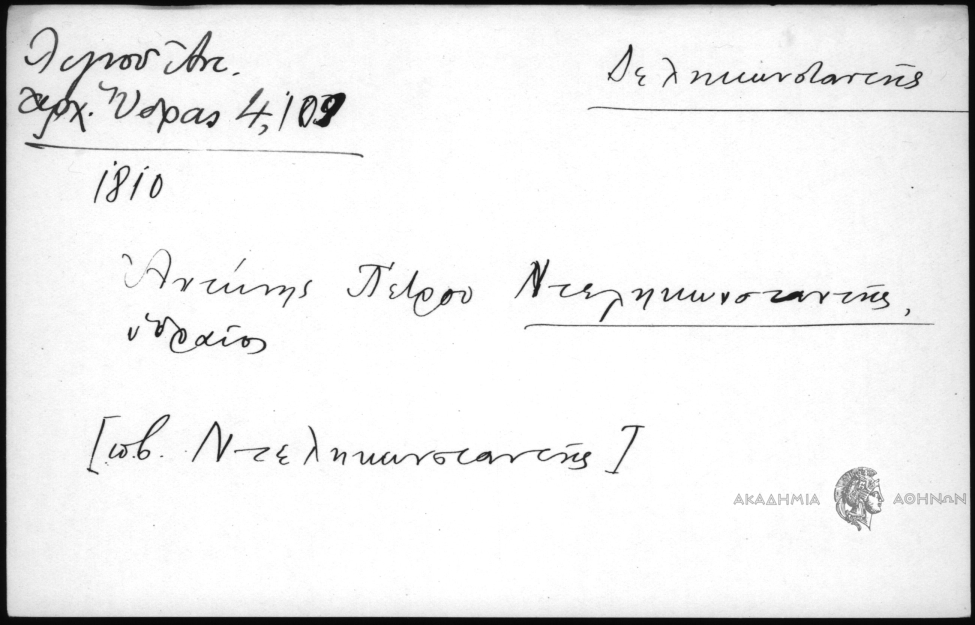 Λιγνοῦ Ἀντ.
ἀρχ. Ὕδρας 4, 109
Δεληκωνσταντῆς
1810
Ἀντώνης Πέτρου Ντεληκωνσταντῆς,
ὑδραῖος
[πβ. Ντεληκωνσταντῆς]
ΑΚΑΔΗΜΙΑ ΑΘΗΝΩΝ